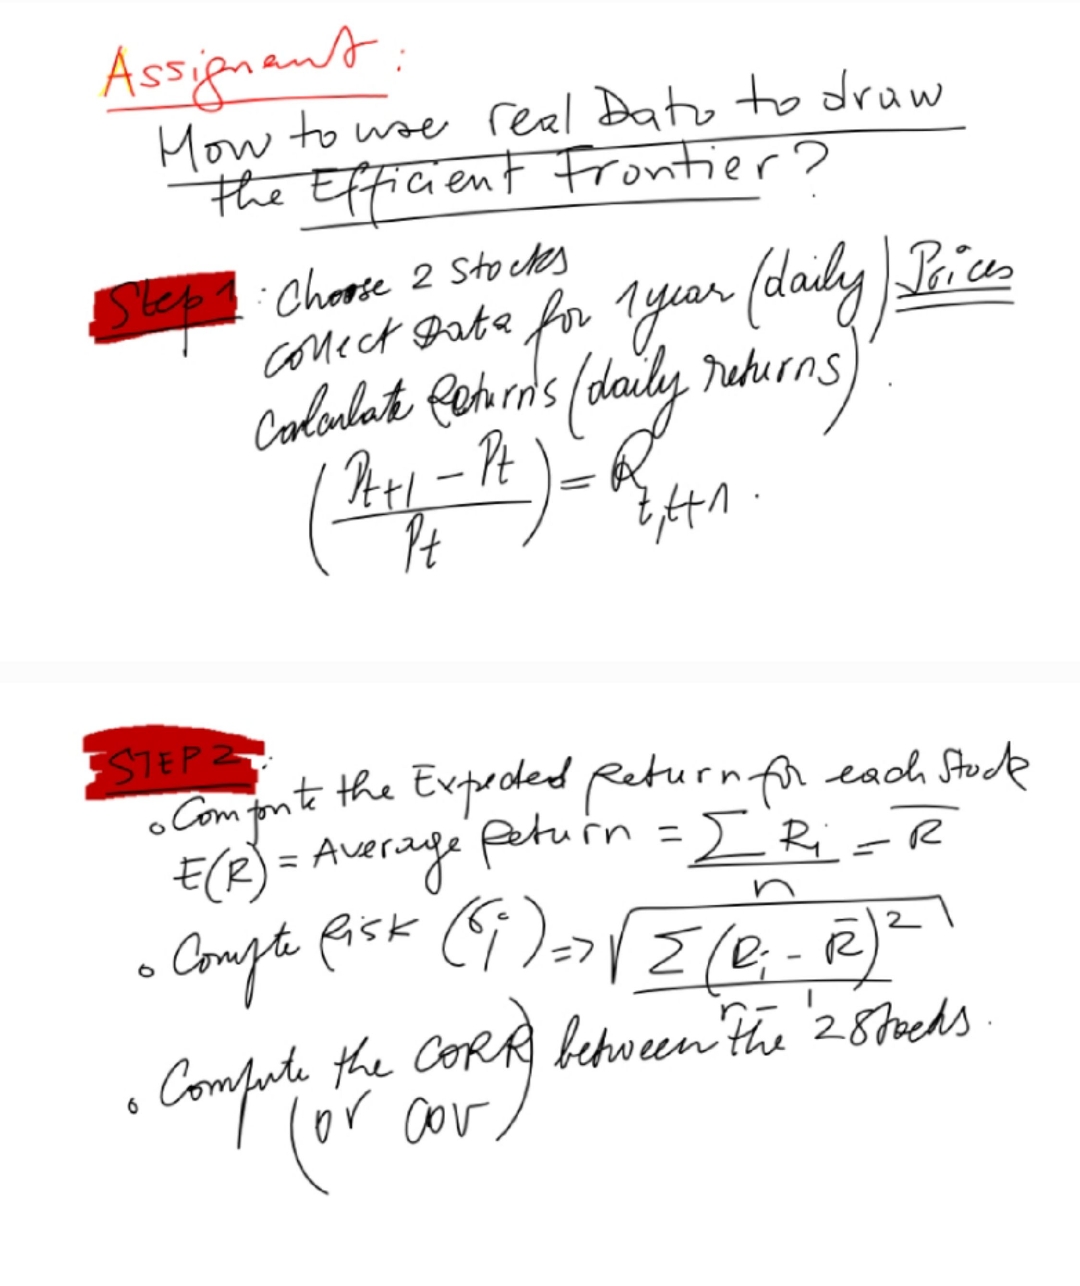 Assignment :
How to use real Data to draw
the Efficient Frontier?
Step 1 : Choose 2 Stocks
collect Data for 1 year (daily) Prices
Calculate Returns (daily returns).
(Pt+1 - Pt / Pt) = Rt,t+1.
STEP 2 :
• Compute the Expected Return for each Stock
E(R) = Average Return = ∑ Ri / n = R̅
• Compute Risk (σi) => √ ∑(Ri - R̅)² / n - 1
• Compute the CORR between the 2 Stocks.
(or COV)